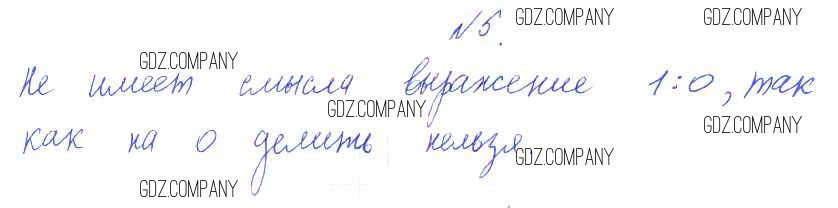 №5.
Не имеет смысла выражение 1:0, так
как на 0 делить нельзя
GDZ.COMPANY
GDZ.COMPANY
GDZ.COMPANY
GDZ.COMPANY
GDZ.COMPANY
GDZ.COMPANY
GDZ.COMPANY